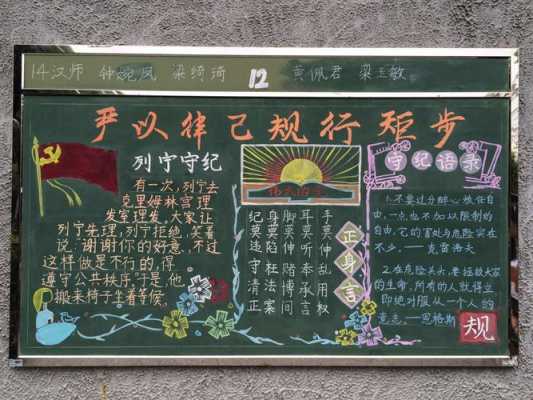 14汉师 钟婉凤 梁绮琦 12 黄佩君 梁玉敏
严以律己规行矩步
列宁守纪
有一次,列宁去
克里姆林宫理
发室理发。大家让
列宁先理,列宁拒绝,笑着
说:谢谢你的好意,不过
这样做是不行的,得
遵守公共秩序。于是,他
搬来椅子坐着等候。
手莫伸乱用权
耳莫听奉承言
脚莫伸赌博间
身莫陷枉法案
纪莫违守清正
正身言
守纪语录
1.不要过分醉心放任自
由,一点也不加以限制的
自由,它的害处与危险实在
不少。——克雷洛夫
2.在危险关头,要拯救大家
的生命,所有的人就得立
即绝对服从一个人的
意志。——恩格斯
规